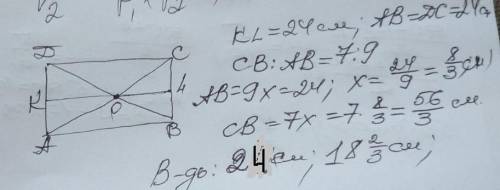 KL = 24 см; AB = DC = 24
CB : AB = 7 : 9
AB = 9x = 24; x = 24/9 = 8/3 (см)
CB = 7x = 7 · 8/3 = 56/3 см.
В-дь: 24 см; 18 2/3 см;
D
C
K
O
L
A
B